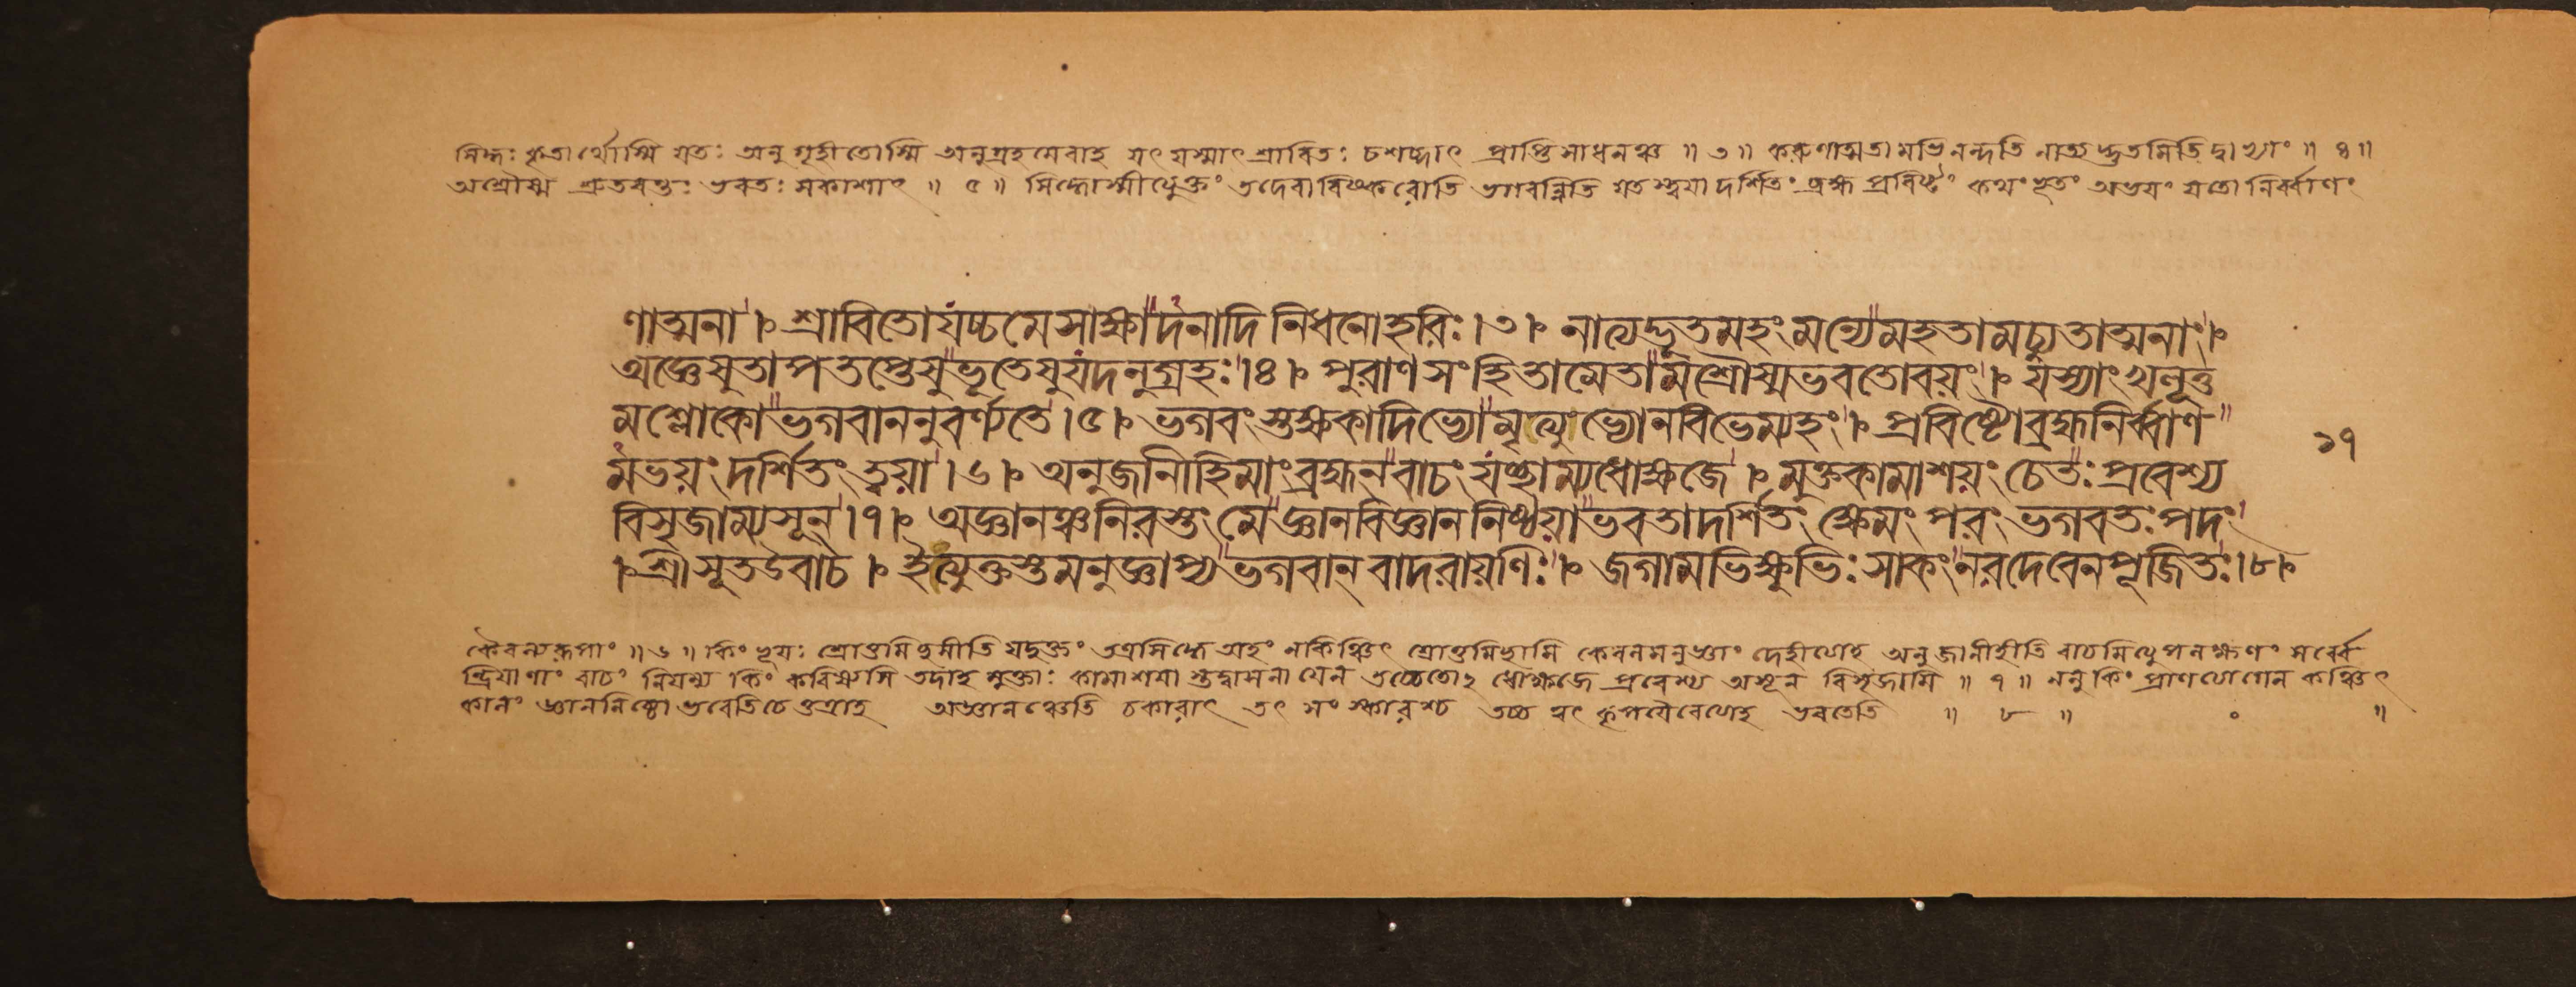 সিদ্ধঃ কৃতার্থোস্মি যতঃ অনুগৃহীতোস্মি অনুগ্রহমেবাহ যৎ যস্মাৎ শ্রাবিতঃ চশব্দাৎ প্রাপ্তিসাধনঞ্চ ॥ ৩ ॥ করুণাত্মতামভিনন্দতি নাত্যদ্ভুতমিতি দ্বাভ্যাং ॥ ৪ ॥
অশ্রৌষ্ম শ্রুতবন্তঃ ভবতঃ সকাশাৎ ॥ ৫ ॥ সিদ্ধোস্মীত্যুক্তং তদেবাবিষ্করোতি ভগবন্নিতি যতস্ত্বয়া দর্শিতং ব্রহ্ম প্রবিষ্টঃ কথংভূতং অভয়ং যতো নির্ব্বাণং
ণাত্মনা । শ্রাবিতোযচ্চমেসাক্ষাদনাদিনিধনোহরিঃ ।৩। নাত্যদ্ভুতমহং মন্যেমহতামচ্যুতাত্মনাং ।
অজ্ঞেষুতাপতপ্তেষুভূতেষুযদনুগ্রহঃ ।৪। পুরাণসংহিতামেতামশ্রৌষ্মভবতোবয়ং । যস্যাং খলূত্ত
মশ্লোকোভগবাননুবর্ণ্যতে ।৫। ভগবংস্তক্ষকাদিভ্যোমৃত্যুভ্যোনবিভেম্যহং । প্রবিষ্টোব্রহ্মনির্ব্বাণ
মভয়ং দর্শিতং ত্বয়া ।৬। অনুজানীহিমাং ব্রহ্মন্বাচং যচ্ছাম্যধোক্ষজে । মুক্তকামাশয়ং চেতঃ প্রবেশ্য
১৭
বিসৃজাম্যসূন্ ।৭। অজ্ঞানঞ্চনিরস্তং মেজ্ঞানবিজ্ঞাননিষ্ঠয়াভবতাদর্শিতং ক্ষেমং পরং ভগবতঃ পদং
। শ্রীসূতউবাচ । ইত্যুক্তস্তমনুজ্ঞাপ্যভগবান্ বাদরায়ণিঃ । জগামভিক্ষুভিঃ সাকংনরদেবেনপূজিতঃ ।৮।
কৈবল্যরূপং ॥ ৬ ॥ কিং ভূয়ঃ শ্রোতুমিচ্ছসীতি যদুক্তং তত্রসিদ্ধেঅহং নকিঞ্চিৎ শ্রোতুমিচ্ছামি কেবলমনুজ্ঞাং দেহীত্যাহ অনুজানীহীতি বাচমিত্যুপলক্ষণং সর্ব্বে
ন্দ্রিয়াণাং বাচং নিয়ম্য কিং করিষ্যসি তদাহ মুক্তাঃ কামাশয়া স্তদ্বাসনা যেন তচ্চেতোঽধোক্ষজে প্রবেশ্য অসূন্ বিসৃজামি ॥ ৭ ॥ ননু কিং প্রাণত্যাগেন কঞ্চিৎ
কালং জ্ঞাননিষ্ঠো ভবেতিচেত্তত্রাহ অজ্ঞানঞ্চেতি চকারাৎ তৎ সংস্কারশ্চ তচ্চ যৎ কৃপয়ৈবেত্যাহ ভবতেতি ॥ ৮ ॥ ० ॥